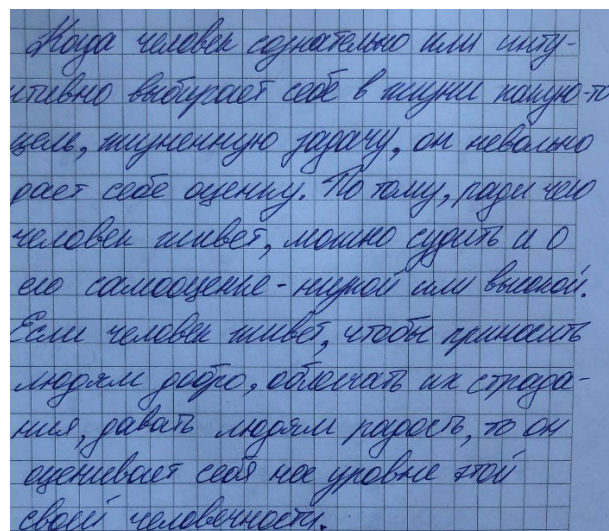 Когда человек сознательно или инту-
итивно выбирает себе в жизни какую-то
цель, жизненную задачу, он невольно
дает себе оценку. По тому, ради чего
человек живет, можно судить и о
его самооценке - низкой или высокой.
Если человек живёт, чтобы приносить
людям добро, облегчать их страда-
ния, давать людям радость, то он
оценивает себя на уровне этой
своей человечности.